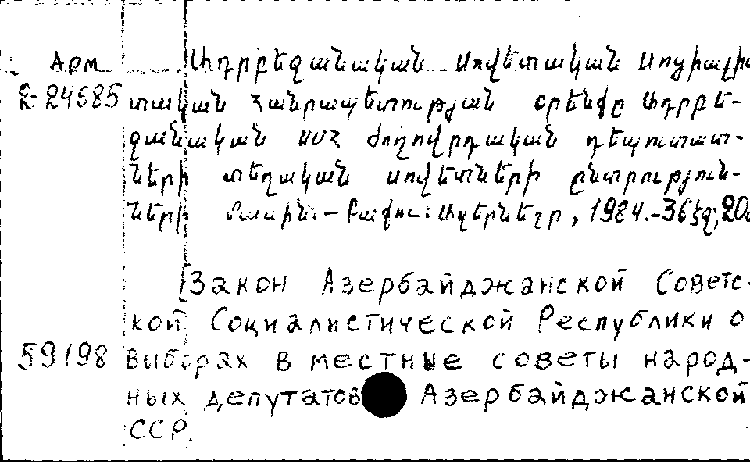 Арм Ադրբեջանական Սովետական Սոցիալիս
2-24685 տական Հանրապետության օրենքը Ադրբե-
ջանական ՍՍՀ ժողովրդական դեպուտատ-
ների տեղական սովետների ընտրություն-
ների մասին.- Բաքու: Ազերնեշր, 1984.-36 էջ, 20
Закон Азербайджанской Советс-
кой Социалистической Республики о
59198 выборах в местные советы народ-
ных депутатов Азербайджанской
ССР.